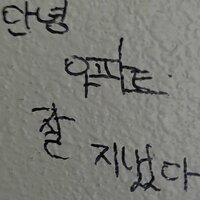 단녕
아파트.
잘
지냈다